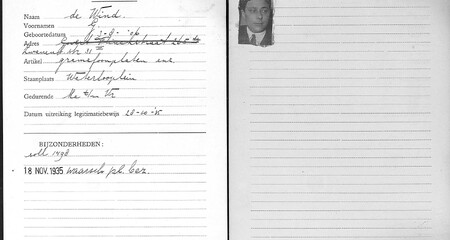 Naam de Wind.
Voornamen
Geboortedatum
Adres
Artikel gramofoonplaten enz.
Staanplaats Waterlooplein
Gedurende Ma t/m Vr
Datum uitreiking legitimatiebewijs 28-10-'35
BIJZONDERHEDEN:
volt 1498
18 NOV. 1935 waarsch. pl. bez.